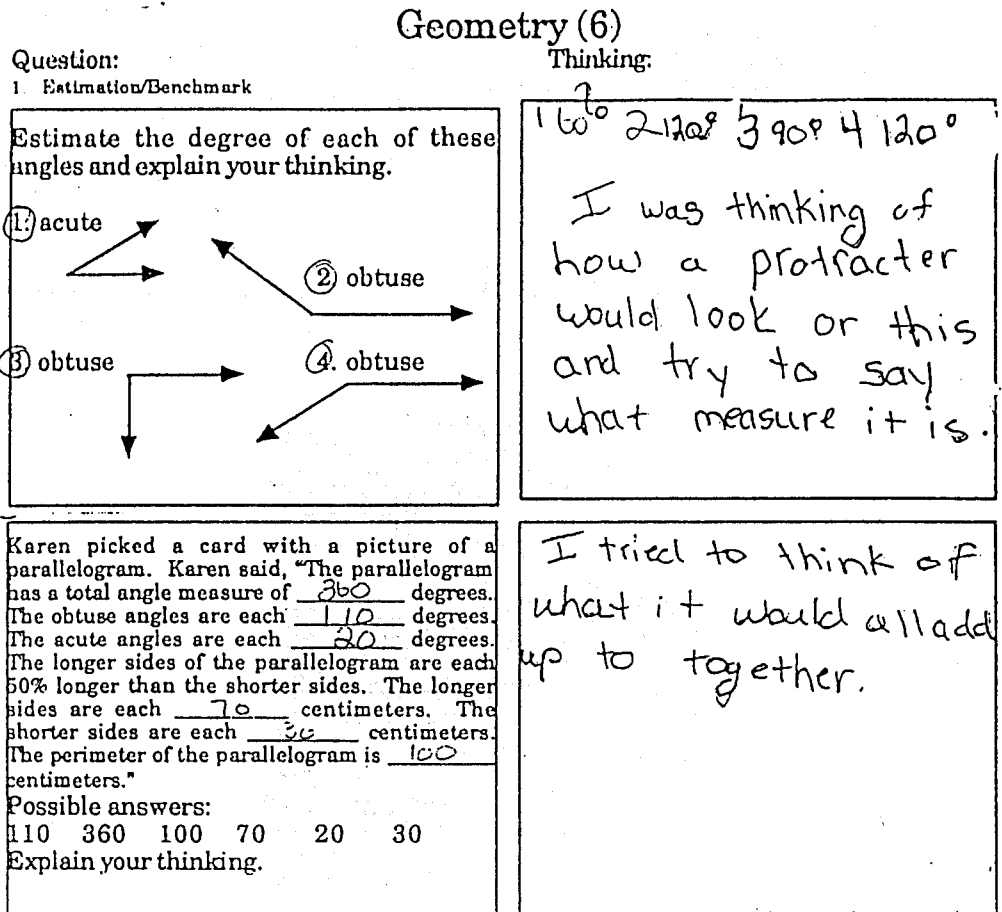 Geometry (6)
Question:
Thinking:
1 Estimation/Benchmark
Estimate the degree of each of these
angles and explain your thinking.
1. acute
2 obtuse
3 obtuse
4. obtuse
1 60° 2 120° 3 90° 4 120°
I was thinking of
how a protracter
would look or this
and try to say
what measure it is.
Karen picked a card with a picture of a
parallelogram. Karen said, "The parallelogram
has a total angle measure of 360 degrees.
The obtuse angles are each 110 degrees.
The acute angles are each 20 degrees.
The longer sides of the parallelogram are each
50% longer than the shorter sides. The longer
sides are each 70 centimeters. The
shorter sides are each 30 centimeters.
The perimeter of the parallelogram is 100
centimeters."
Possible answers:
110 360 100 70 20 30
Explain your thinking.
I tried to think of
what it would all add
up to together.